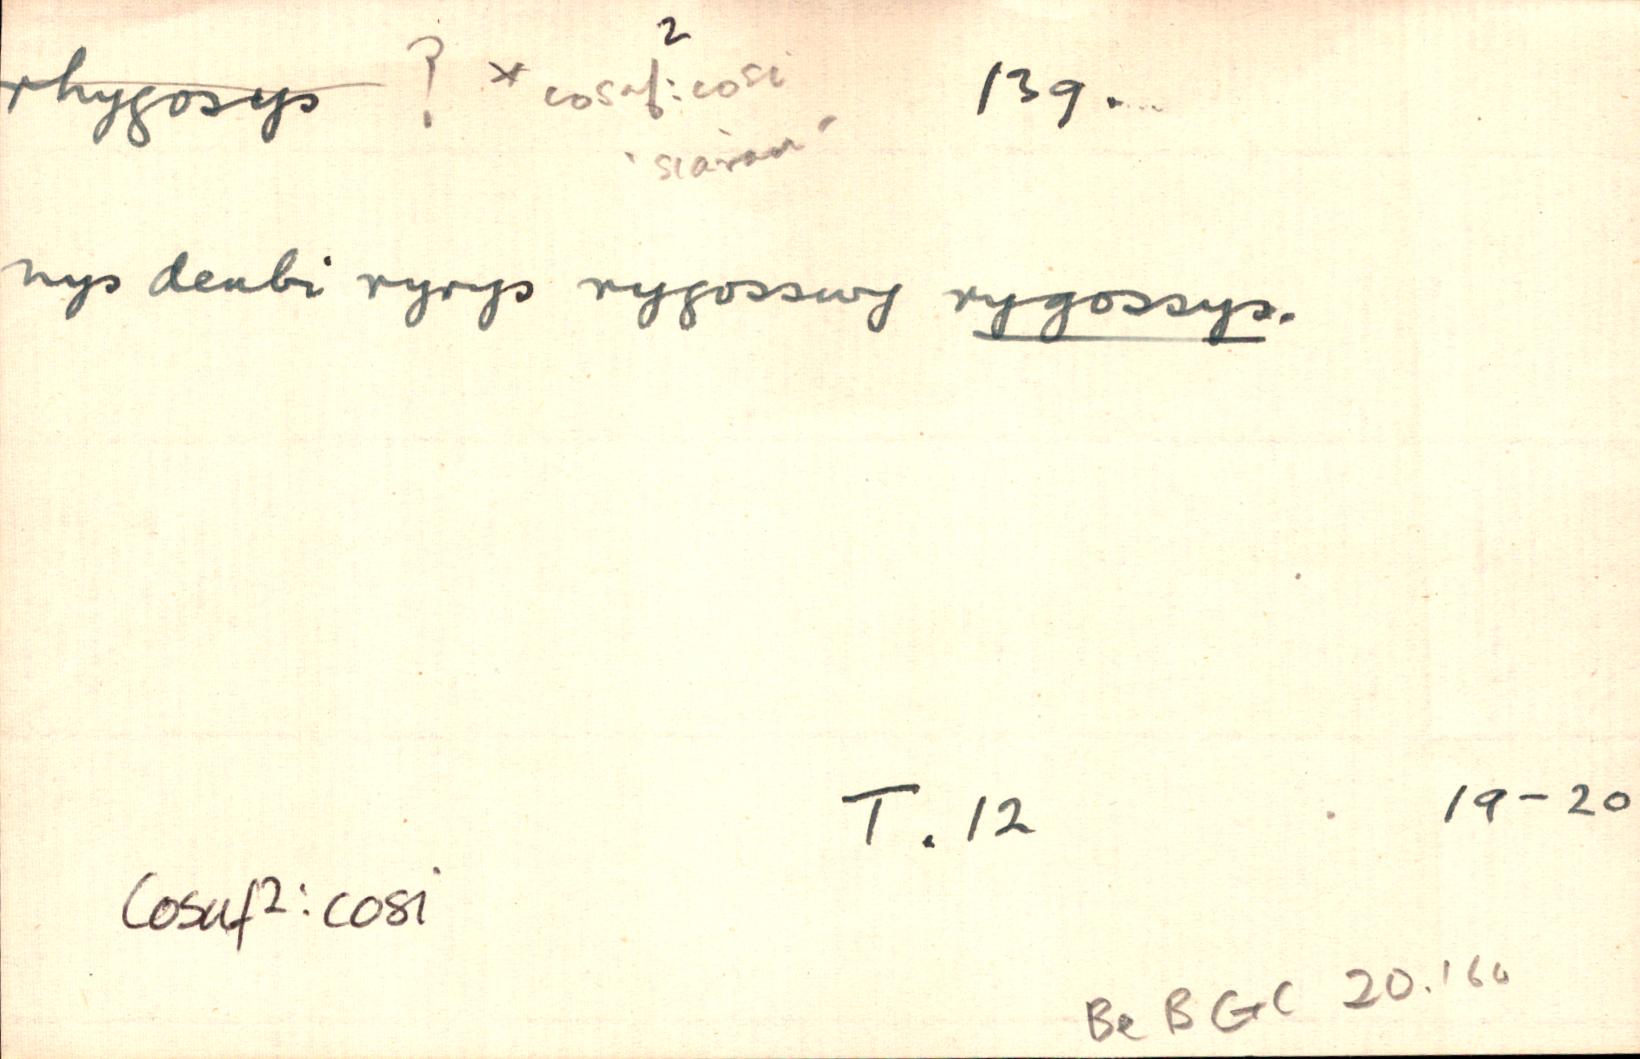 rhygosys ? * cosaf²: cosi 139.
'siarad'
nys deubi ryrys rygosswy rygossys.
T. 12 19-20
Cosaf²: cosi
BeBGC 20.160